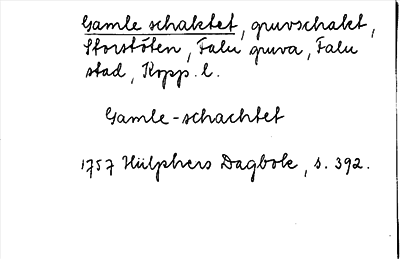 Gamle schaktet, gruvschakt,
Storstöten, Falu gruva, Falu
stad, Kopp. l.
Gamle-schachtet
1757 Hülphers Dagbok, s. 392.